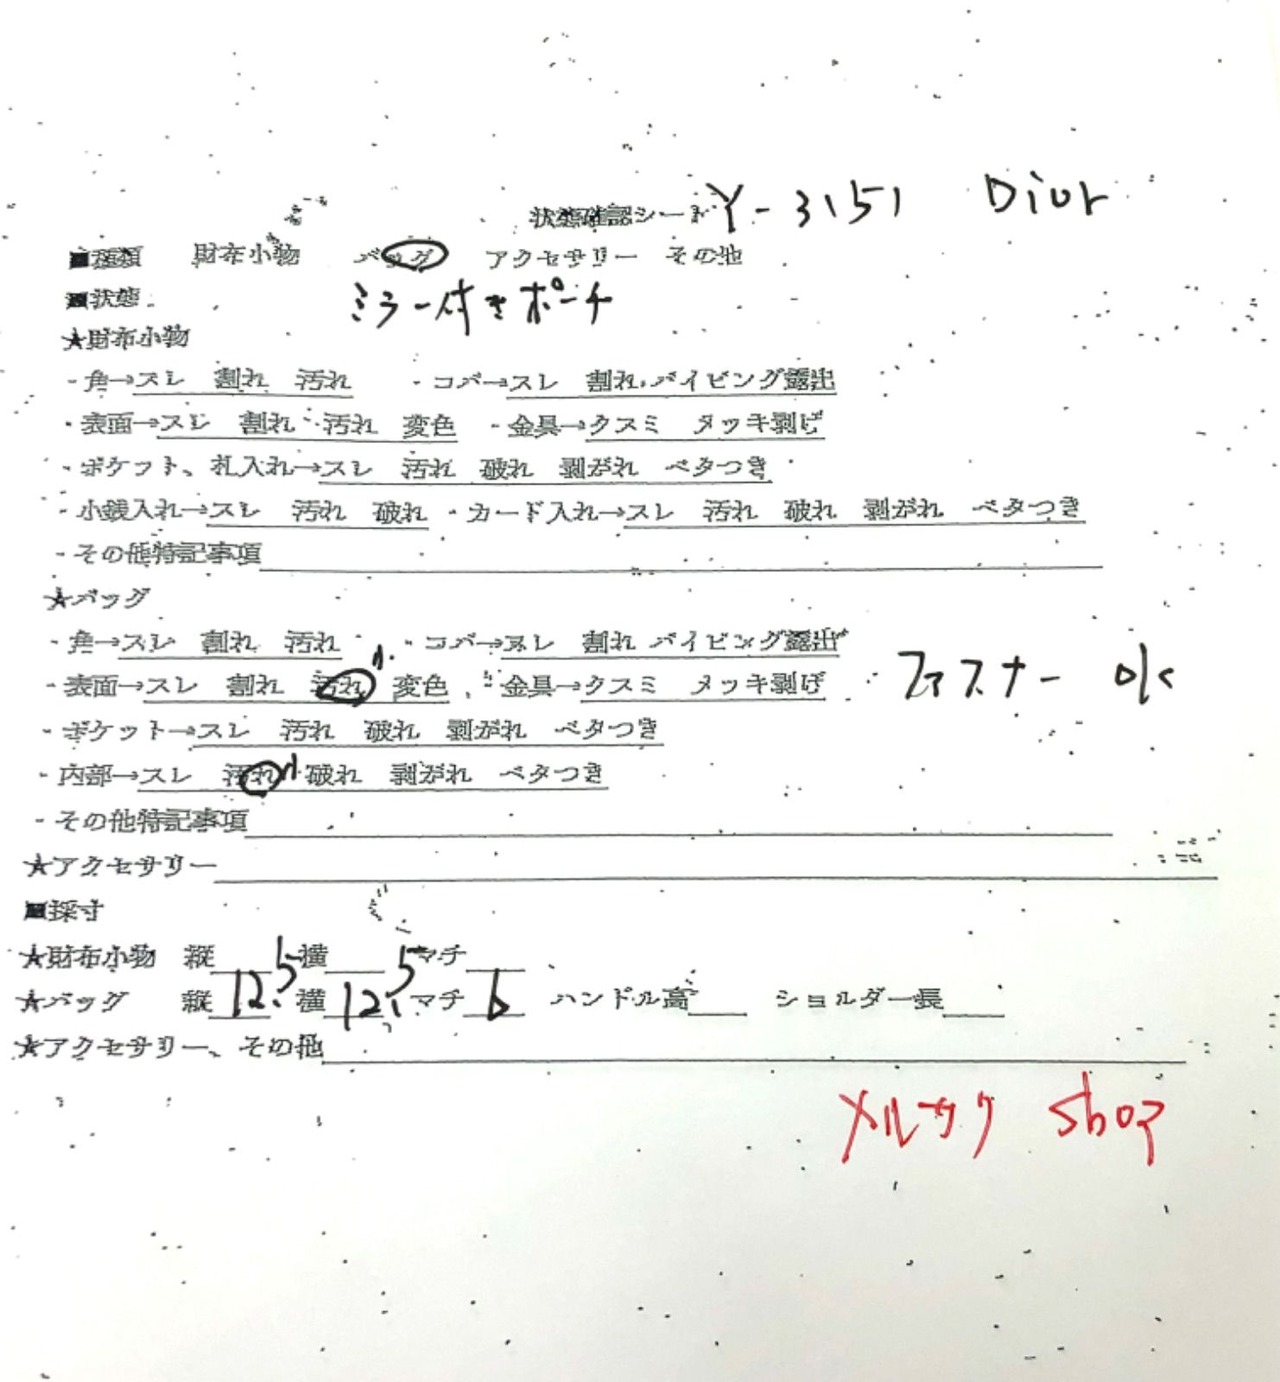 状態確認シート Y-3151 Dior
■種類 財布小物 バッグ アクセサリー その他
■状態 ミラー付きポーチ
★財布小物
・角→スレ 割れ 汚れ ・コバ→スレ 割れ パイピング露出
・表面→スレ 割れ 汚れ 変色 ・金具→クスミ メッキ剥げ
・ポケット、札入れ→スレ 汚れ 破れ 剥がれ ベタつき
・小銭入れ→スレ 汚れ 破れ ・カード入れ→スレ 汚れ 破れ 剥がれ ベタつき
・その他特記事項
★バッグ
・角→スレ 割れ 汚れ ・コバ→スレ 割れ パイピング露出
・表面→スレ 割れ 汚れ 小 変色 ・金具→クスミ メッキ剥げ ファスナー ok
・ポケット→スレ 汚れ 破れ 剥がれ ベタつき
・内部→スレ 汚れ 小 破れ 剥がれ ベタつき
・その他特記事項
★アクセサリー
■採寸
★財布小物 縦 横 マチ
★バッグ 縦 12.5 横 12.5 マチ 6 ハンドル高 ショルダー長
★アクセサリー、その他
メルカク shop